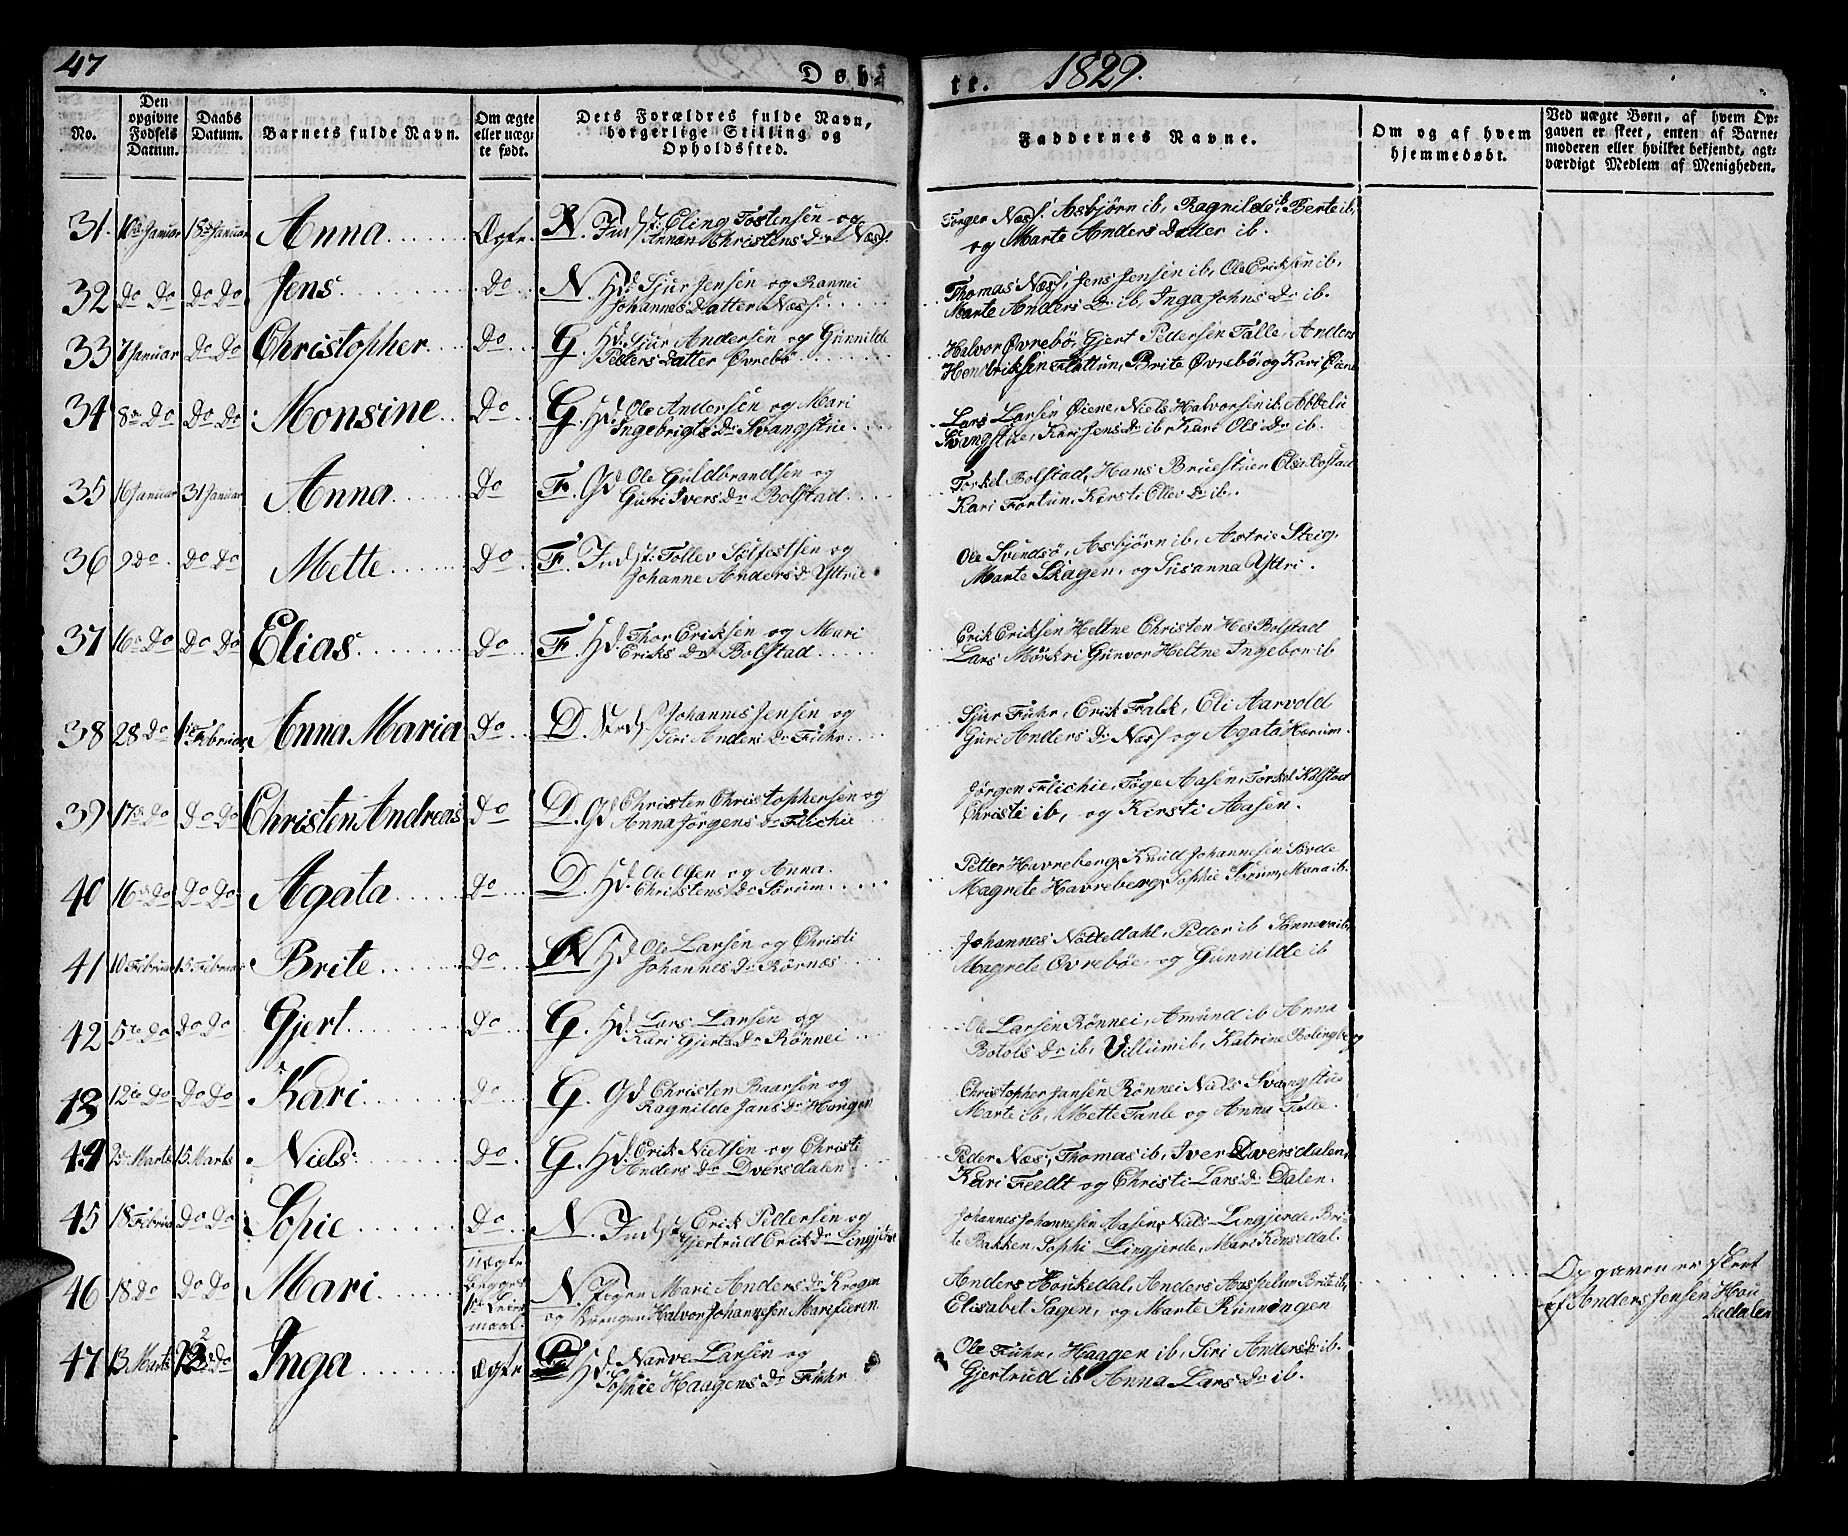 47
Døbte. 1829.
No.
Den opgivne Fødsels Datum.
Daabs Datum.
Barnets fulde Navn.
Om ægte eller uægte født.
Dets Forældres fulde Navn, borgerlige Stilling og Opholdssted.
Faddernes Navne.
Om og af hvem hjemmedøbt.
Ved uægte Børn, af hvem Opgaven er skeet, enten af Barnemoderen eller hvilket bekjendt, agtværdigt Medlem af Menigheden.
31. Januar Januar Anna Ægte. N. Indst: Eling Tostensen og
Anna Christens Dr Næss.
Torger Næss. Asbjørn ib, Ragnilde ib, Berte ib,
og Marte Anders Datter ib.
32 Do Do Do Do Jens Do N. Hd. Sjur Jensen og Rannei
Johannes Datter Næss.
Thomas Næss, Jens Jensen ib, Ole Eriksen ib,
Marte Anders Dr ib, Inga Johns Dr ib.
33 7 Januar Do Do Christopher Do G. Hd. Sjur Andersen og Gunnilde
Peders Datter Øvrebø
Halvor Øvrebø, Gjert Pedersen Talle, Anders
Hendriksen Flattun, Brite Øvrebø, og Kari Øiene
34 8de Do Do Do Monsine Do G. Hd. Ole Andersen og Mari
Ingebrigts Dr Svangstue
Lars Larsen Øiene, Niels Halvorsen ib, Abbelu
Svangstue, Kari Jens Dr ib, Kari Ols Dr ib.
35 16 Januar 31 Januar Anna Do F. Gd Ole Guldbrandsen og
Guri Ivers Dr Bolstad.
Torkel Bolstad, Hans Bruestuen Else Bolstad
Kari Fortun, Kirsti Ellev Dr ib.
36 9 Do Do Do Mette Do F. Indst: Tollev Solfestsen og
Johanne Anders Dr Yttrie
Ole Svendsø, Asbjørn ib, Astrie Steig,
Marte Skagen, og Susanna Yttri.
37 16 Do Do Do Elias Do F. Hd. Thor Eriksen og Mari
Eriks Dr Bolstad
Erik Eriksen Heltne Christen Hes Bolstad
Lars Mørkri Gunvor Heltne Ingebor ib
38 28 Do 1ste Februar Anna Maria Do D. Johannes Jensen og
Siri Anders Dr Fuhr.
Sjur Fuhr, Erik Falk, Eli Aarvold
Guri Anders Dr Næss og Agata Hærum.
39 17 Do Do Do Christen Andreas Do D. Gd Christen Christophersen og
Anna Jørgens Dr Flichie
Jørgen Flichie, Tøge Aasen, Torkel Kalstad
Christi ib, og Kirsti Aasen.
40 16 Do Do Do Agata Do D. Hd. Ole Olsen og Anna
Christens Dr Sørum
Petter Havreberg, Knud Johannesen Sørde
Magrete Havreberg, Sophie Sørum, Mana ib.
41 10 Februar 15 Februar Brite Do N Hd Ole Larsen og Christi
Johannes Dr Rørnæs
Johannes Nøttedahl, Peder ib Sønneva ib,
Magrete Øvrebøe, og Gunnilde ib
42 5te Do Do Do Gjert Do G. Hd. Lars Larsen og
Kari Gjerts Dr Rønnei
Ole Larsen Rønnei, Amund ib Anna
Botols Dr ib, Villum ib, Katrine Bolingberg
43 12te Do Do Do Kari Do G. Gd Christen Baarsen og
Ragnilde Jans Dr Haugen
Christopher Jansen Rønnei Niels Svangstue
Marte ib, Mette Tanle og Anna Talle.
44 2den Marts 15 Marts Niels Do G. Hd. Erik Nielsen og Christi
Anders Dr Dversdalen
Peder Næs, Thomas ib, Iver Dversdalen,
Kari Feellt og Christi Lars Dr Dalen.
45 18 Februar Do Do Sopie Do N. Indst Erik Pedersen og
Gjertrud Erik Dr Lingjerde
Johannes Johannesen Aasen, Niels Lingjerde, Bri-
te Bakken, Sophi Lingjerde, Mari Kinsedal.
46 18 Do Do Do Mari Uægte
Begges
1ste Leier
maal.
N. Pigen Mari Anders Dr Krogen
og Drengen Halvor Johannesen Marifieren
Anders Houkedal, Anders Aasselun Brite ib,
Elisabet Sagen, og Marte Kunningen
Opgaven er skeet
af Anders Jensen Hou
kedalen
47 13 Marts Do Inga Ægte D Hd. Narve Larsen og
Sophie Haagens Dr Fuhr
Ole Fuhr, Haagen ib, Siri Anders Dr ib.
Gjertrud ib Anna Lars Dr ib.